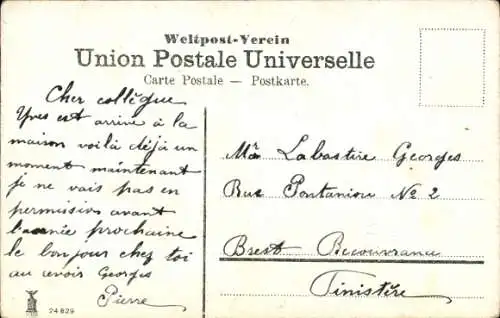 Weltpost-Verein
Union Postale Universelle
Carte Postale — Postkarte.
Cher collègue
Yves est arrivé à la
maison voilà déjà un
moment maintenant
je ne vais pas en
permission avant
l'année prochaine
le bonjour chez toi
au revoir Georges
Pierre
24829
Mr Labastire Georges
Rue Pontaniou No 2
Brest Recouvrance
Finistère